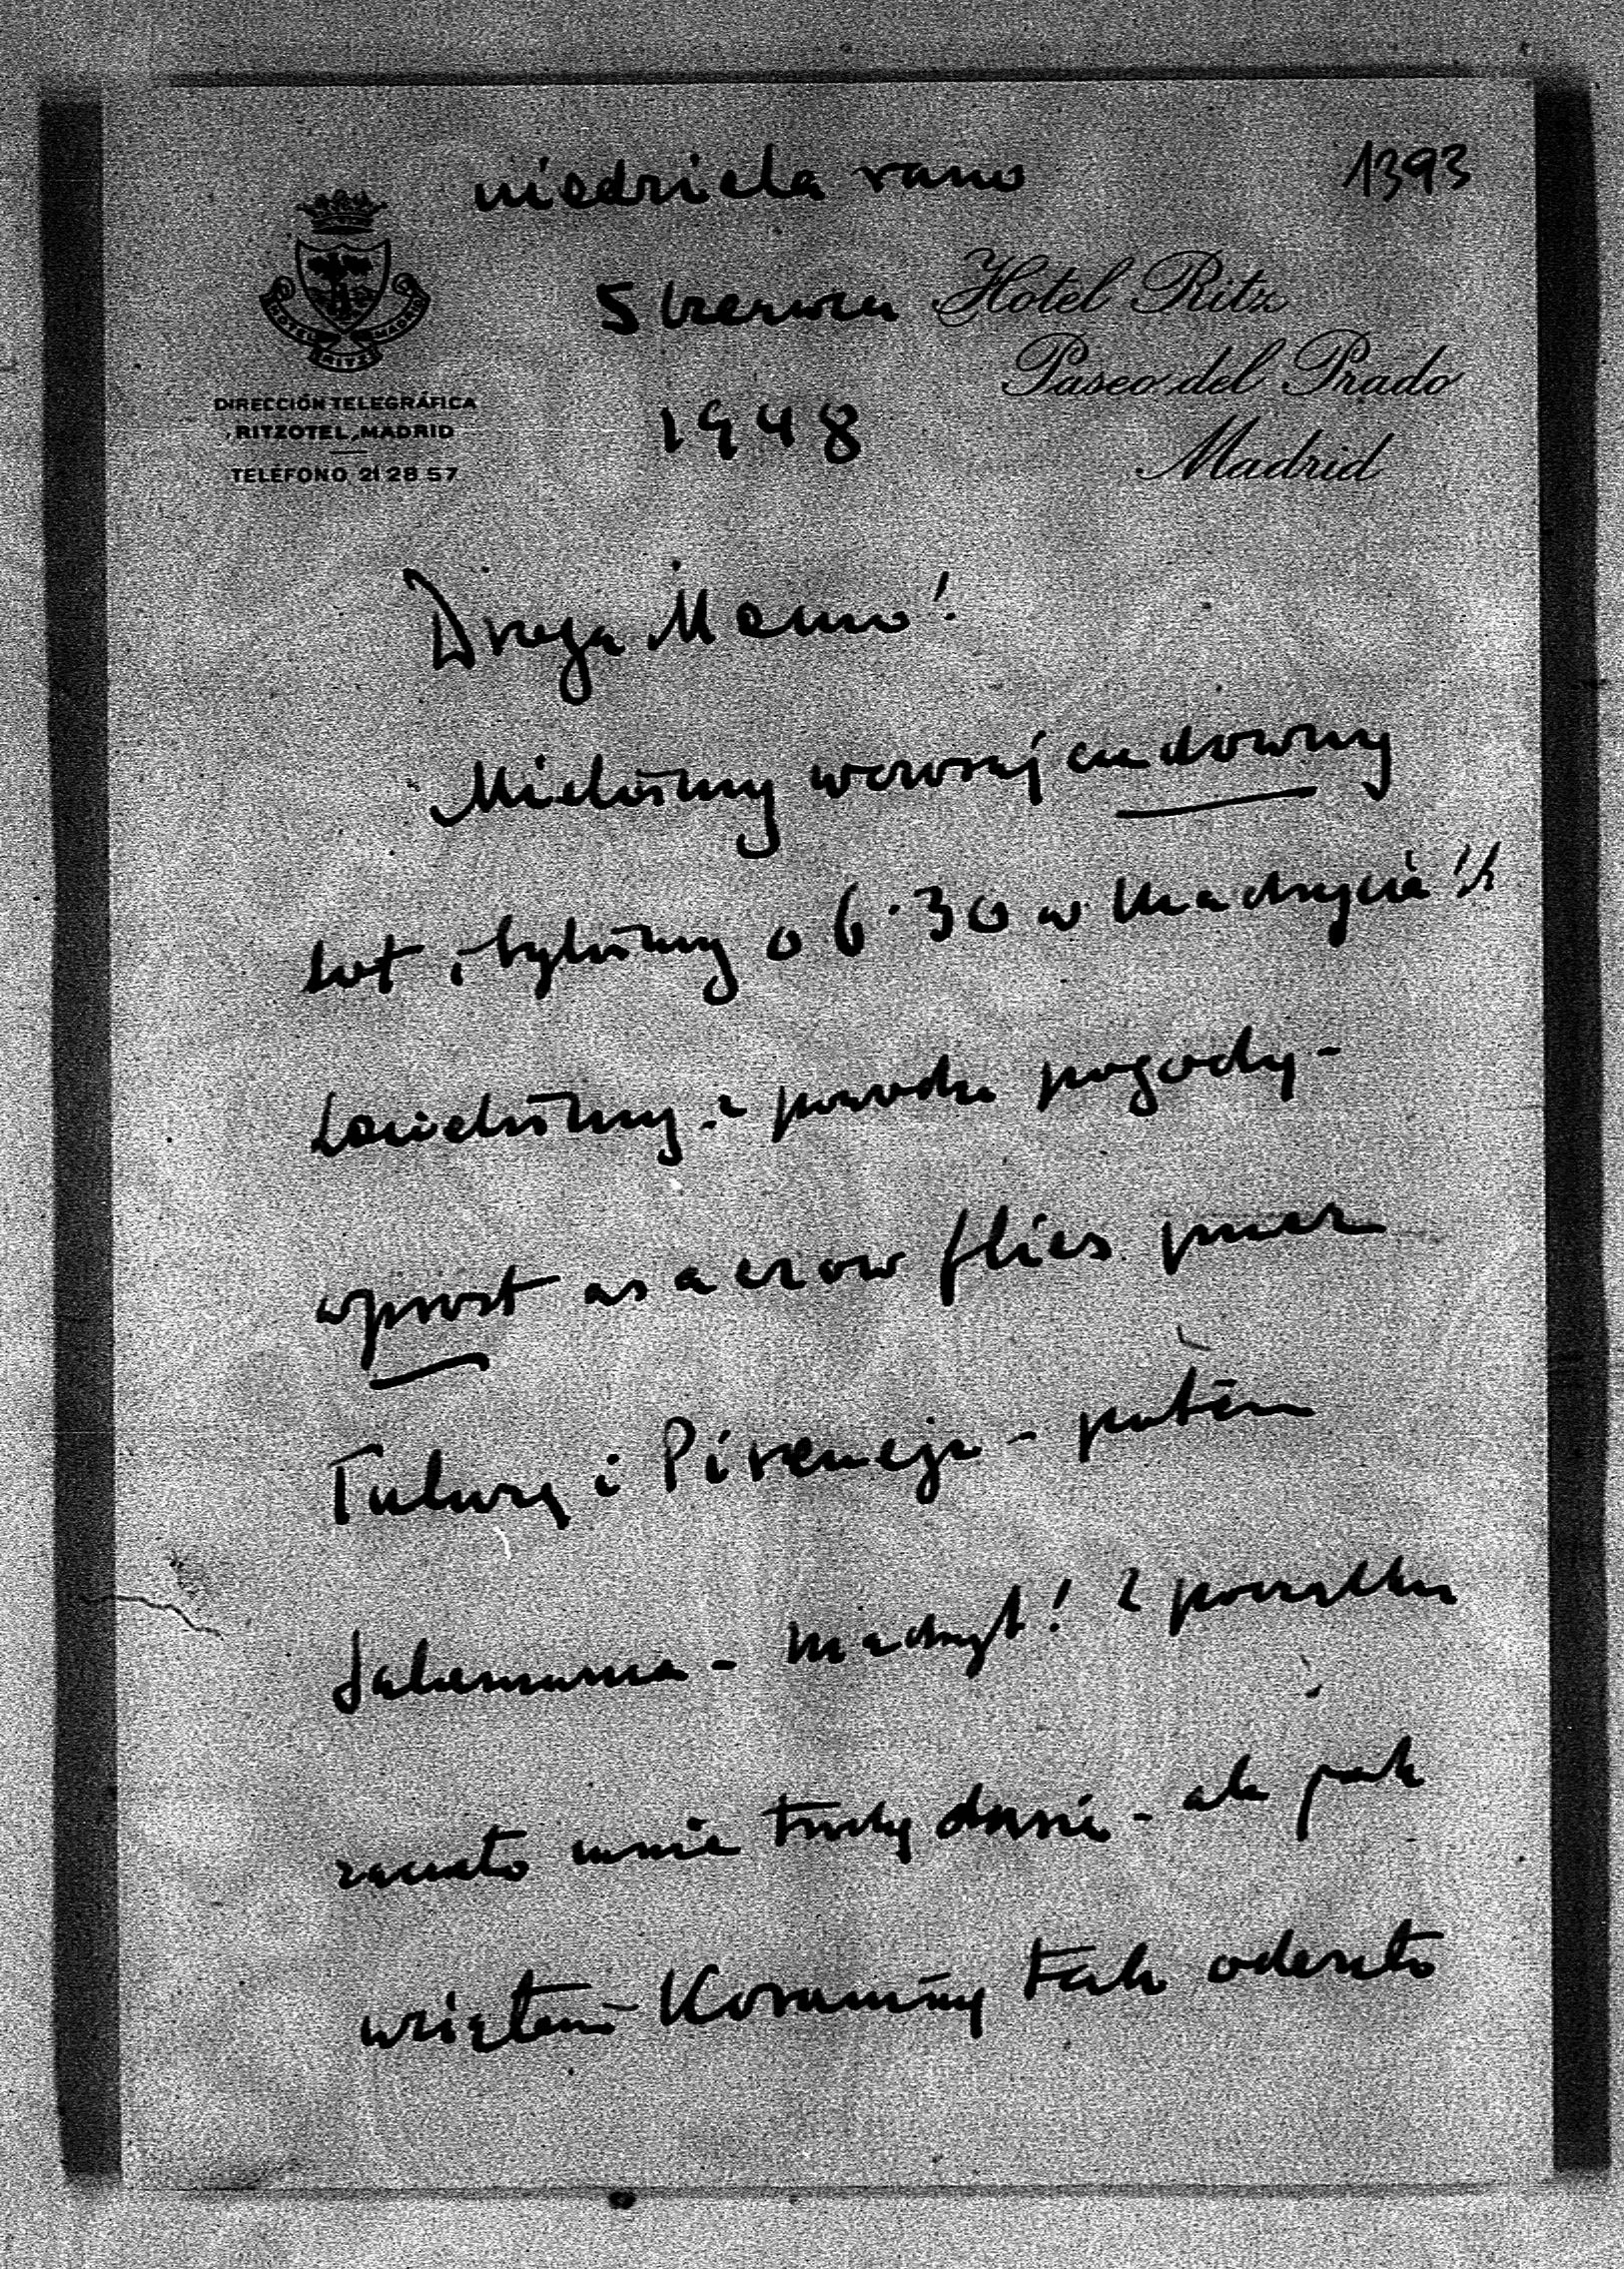 niedziela rano
1393
HOTEL RITZ MADRID
5 czerwca
Hotel Ritz
Paseo del Prado
Madrid
DIRECCIÓN TELEGRÁFICA
RITZOTEL, MADRID
TELÉFONO 21 28 57
1948
Droga Mamo!
Mieliśmy wczoraj cudowny
lot i byliśmy o 6·30 w Madrycie!!
Lecieliśmy z powodu pogody -
wprost as a crow flies przez
Tuluzę i Pireneje - potem
Salamanca - Madryt! Z początku
zaczęło mnie trochę dusić - ale jak
wziąłem Koraminy tak odeszło